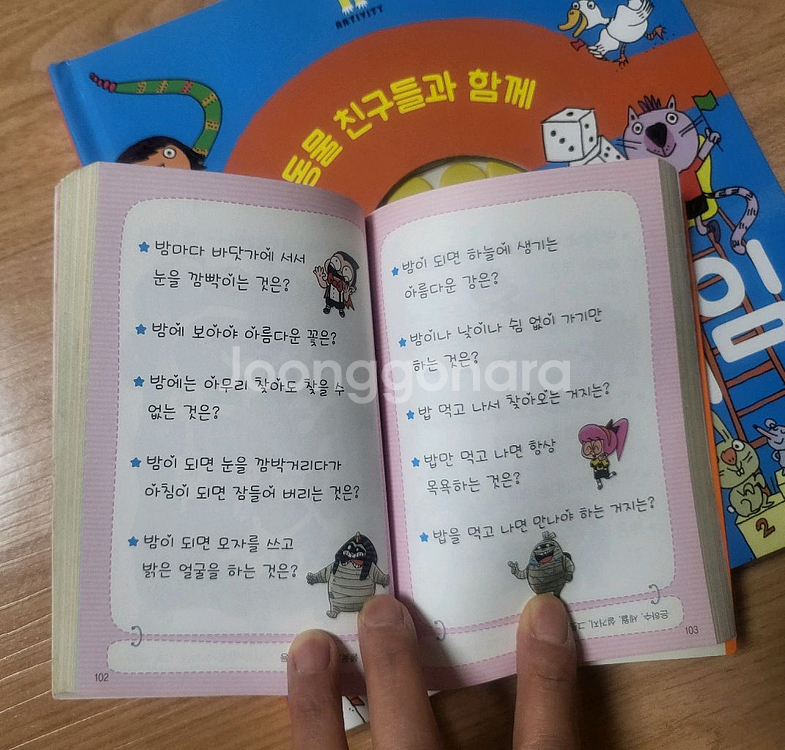 ARTIVITY
동물 친구들과 함께
임
2
밤마다 바닷가에 서서
눈을 깜빡이는 것은?
밤에 보아야 아름다운 꽃은?
밤에는 아무리 찾아도 찾을 수
없는 것은?
밤이 되면 눈을 깜박거리다가
아침이 되면 잠들어 버리는 것은?
밤이 되면 모자를 쓰고
밝은 얼굴을 하는 것은?
102
밤이 되면 하늘에 생기는
아름다운 강은?
밤이나 낮이나 쉼 없이 가기만
하는 것은?
밥 먹고 나서 찾아오는 거지는?
밥만 먹고 나면 항상
목욕하는 것은?
밥을 먹고 나면 만나야 하는 거지는?
은하수, 세월, 설거지,
103
loonggonara